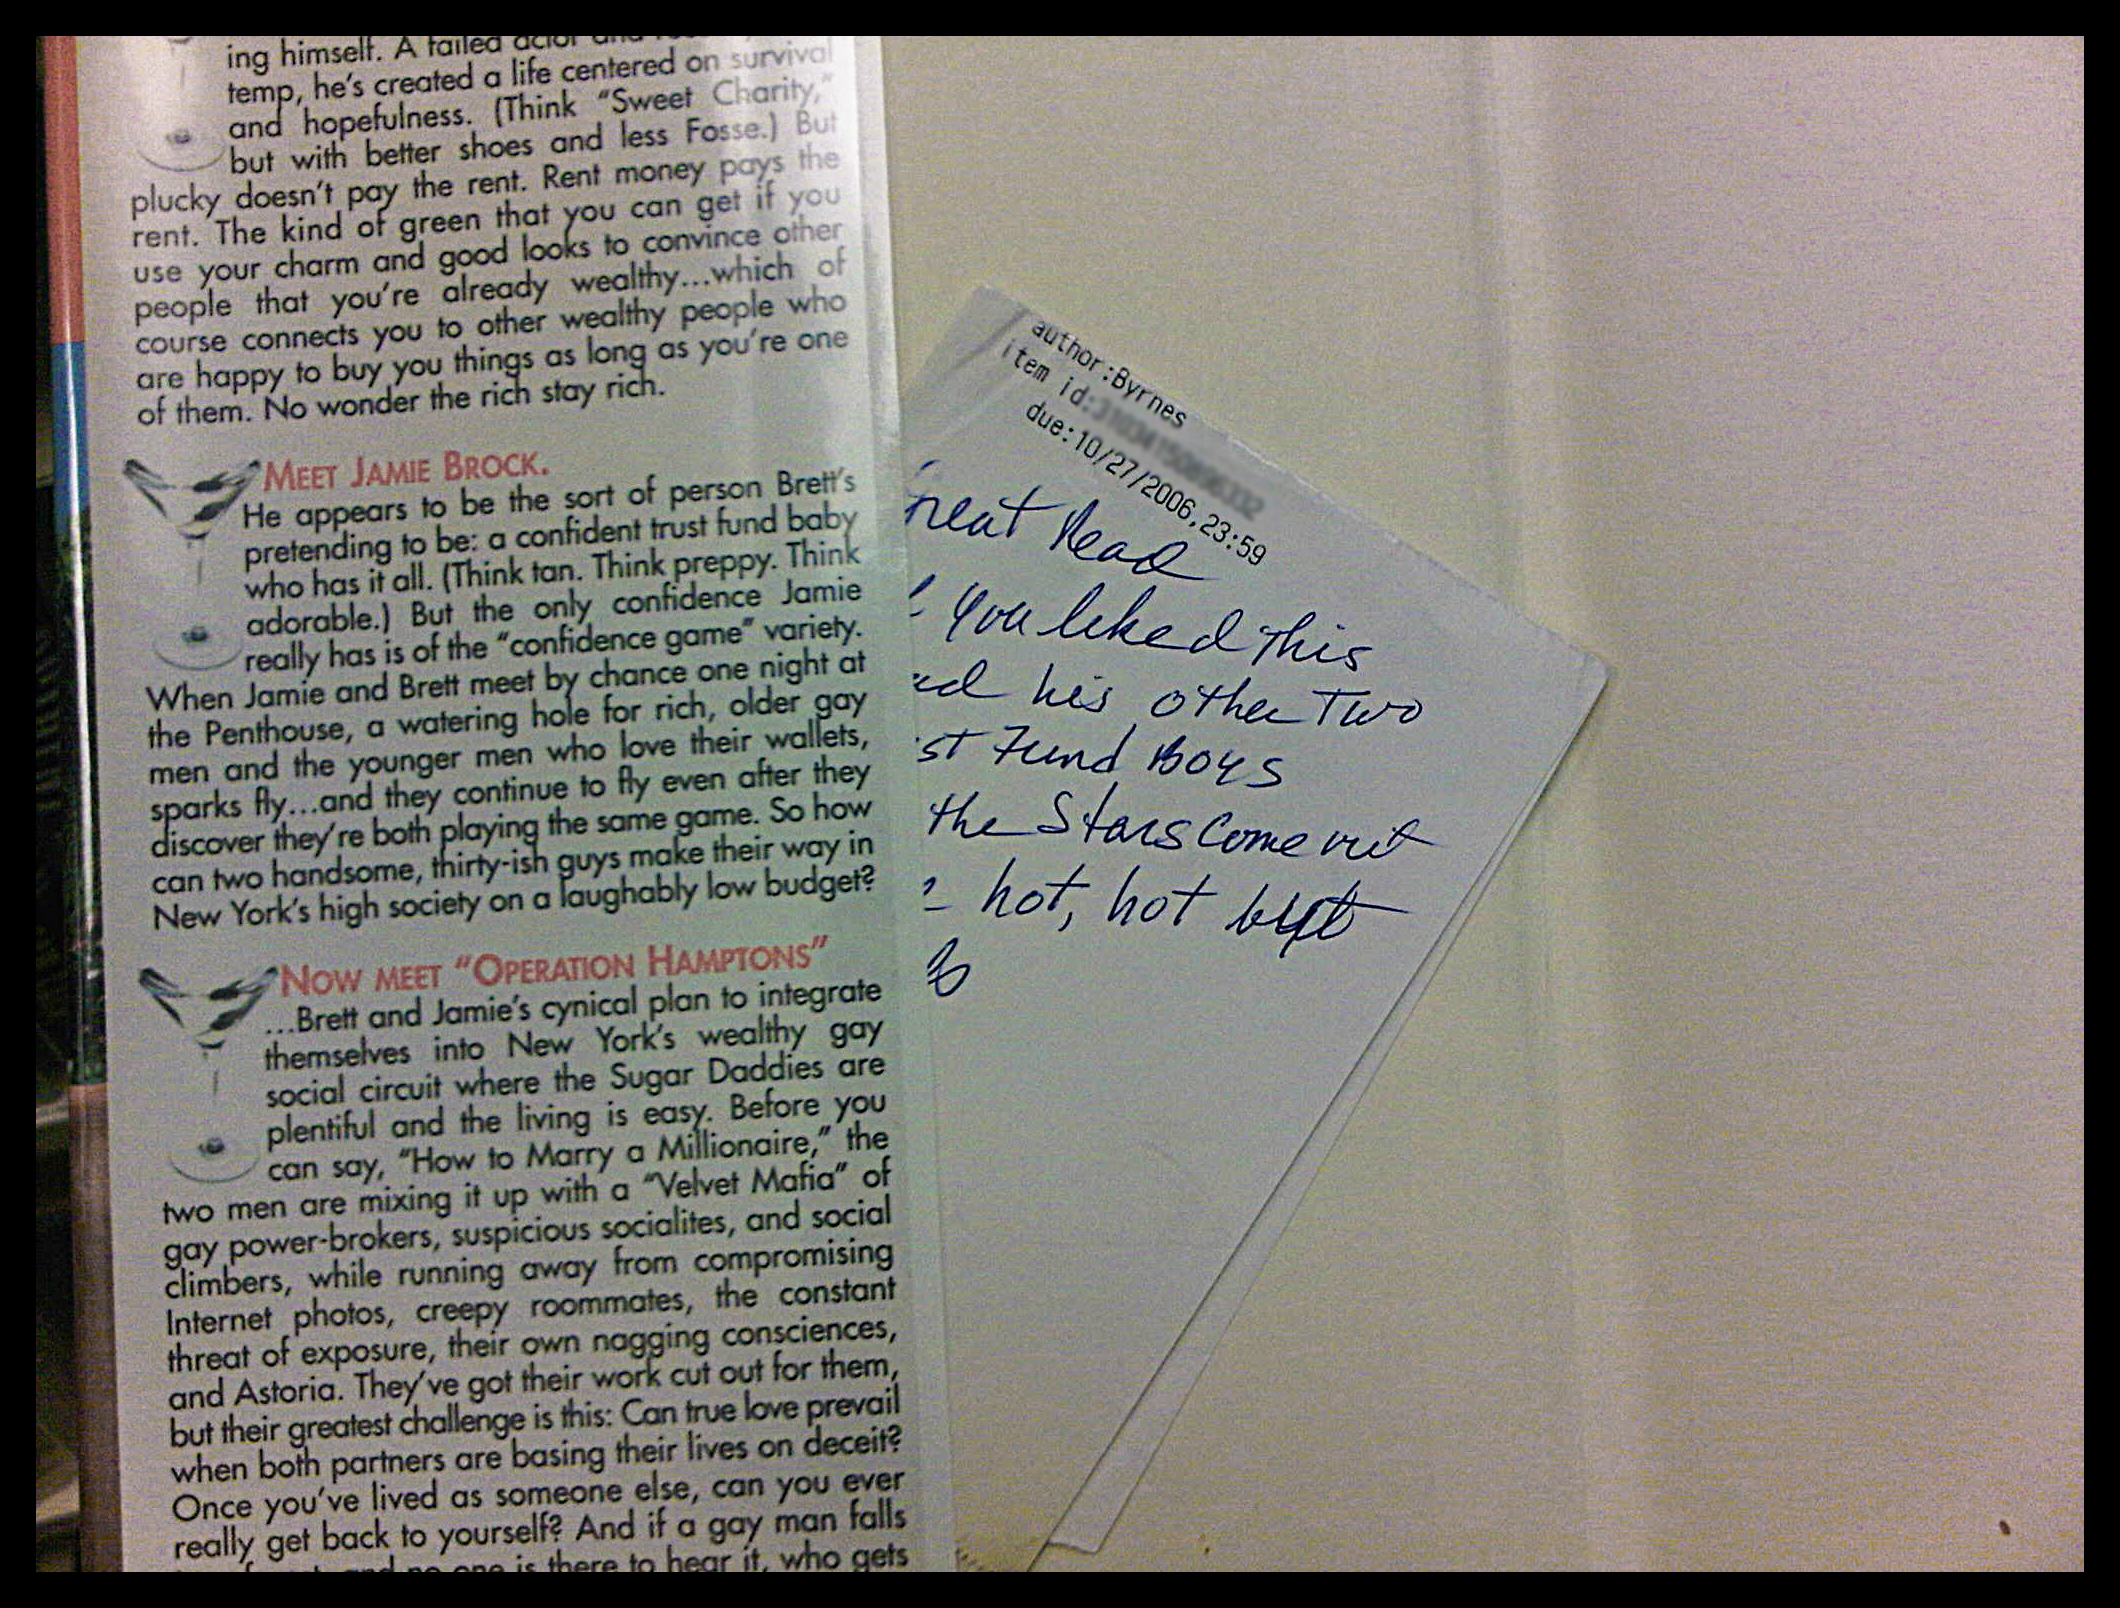 ing himself. A failed actor and
temp, he's created a life centered on survival
and hopefulness. (Think "Sweet Charity,"
but with better shoes and less Fosse.) But
plucky doesn't pay the rent. Rent money pays the
rent. The kind of green that you can get if you
use your charm and good looks to convince other
people that you're already wealthy...which of
course connects you to other wealthy people who
are happy to buy you things as long as you're one
of them. No wonder the rich stay rich.
MEET JAMIE BROCK.
He appears to be the sort of person Brett's
pretending to be: a confident trust fund baby
who has it all. (Think tan. Think preppy. Think
adorable.) But the only confidence Jamie
really has is of the "confidence game" variety.
When Jamie and Brett meet by chance one night at
the Penthouse, a watering hole for rich, older gay
men and the younger men who love their wallets,
sparks fly...and they continue to fly even after they
discover they're both playing the same game. So how
can two handsome, thirty-ish guys make their way in
New York's high society on a laughably low budget?
NOW MEET "OPERATION HAMPTONS"
...Brett and Jamie's cynical plan to integrate
themselves into New York's wealthy gay
social circuit where the Sugar Daddies are
plentiful and the living is easy. Before you
can say, "How to Marry a Millionaire," the
two men are mixing it up with a "Velvet Mafia" of
gay power-brokers, suspicious socialites, and social
climbers, while running away from compromising
Internet photos, creepy roommates, the constant
threat of exposure, their own nagging consciences,
and Astoria. They've got their work cut out for them,
but their greatest challenge is this: Can true love prevail
when both partners are basing their lives on deceit?
Once you've lived as someone else, can you ever
really get back to yourself? And if a gay man falls
and no one is there to hear it, who gets
author:Byrnes
item id:
due:10/27/2006,23:59
reat Read
you liked this
ad his other Two
st Fund Boys
the Stars Come out
hot, hot but